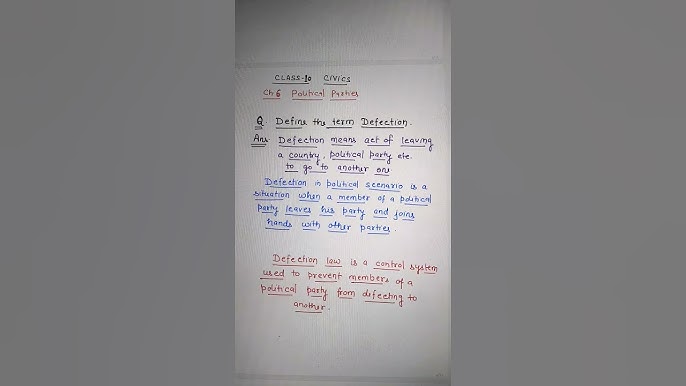 CLASS-10 CIVICS
Ch 6 Political Parties
Q. Define the term Defection.
Ans Defection means act of leaving
a country, political party etc.
to go to another one
Defection in political scenario is a
situation when a member of a political
party leaves his party and joins
hands with other parties.
Defection law is a control system
used to prevent members of a
political party from defecting to
another.